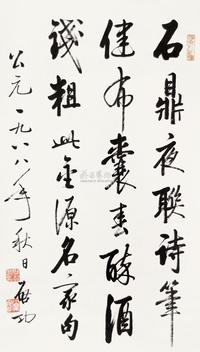 石鼎夜联诗笔
健布囊春醉酒
钱粗此金源名家句
公元一九八八年秋日启功